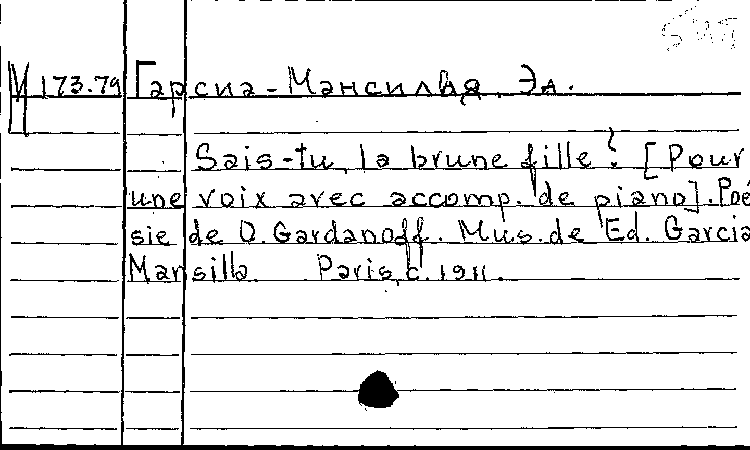 М 173.79 Гарсиа-Мансилья, Эд.
Sais-tu, la brune fille? [Pour
une voix avec accomp. de piano]. Poé
sie de D. Gardanoff. Mus. de Ed. Garcia
Mansilla. Paris, c. 1911.